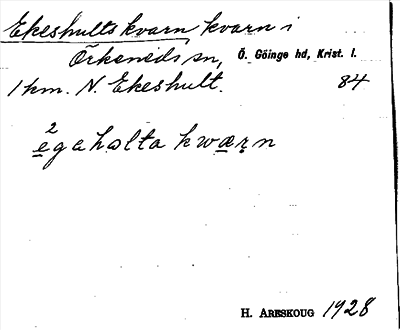 Ekeshultskvarn kvarn i
Örkeneds sn, Ö. Göinge hd, Krist. l.
1 km. N. Ekeshult. 84
2
egahalta kwærn
H. ARESKOUG 1928